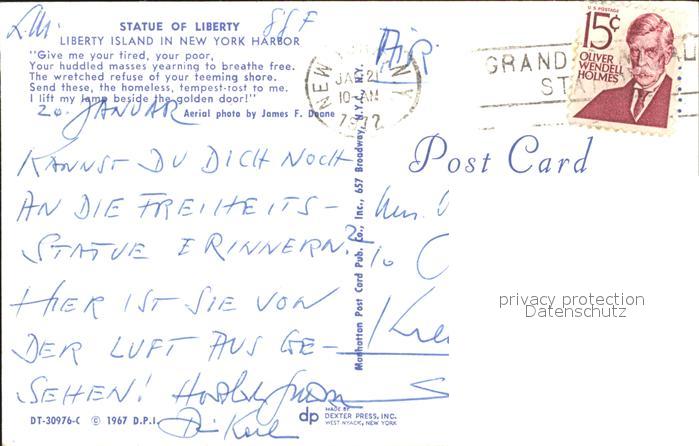 L.M.
88 F
STATUE OF LIBERTY
LIBERTY ISLAND IN NEW YORK HARBOR
"Give me your tired, your poor,
Your huddled masses yearning to breathe free.
The wretched refuse of your teeming shore.
Send these, the homeless, tempest-rost to me.
I lift my lamp beside the golden door!"
20. JANUAR
Aerial photo by James F. Doane
KANNST DU DICH NOCH
AN DIE FREIHEITS-
STATUE ERINNERN?
HIER IST SIE VON
DER LUFT AUS GE-
SEHEN!
DT-30976-C © 1967 D.P.I.
dp
MADE BY
DEXTER PRESS, INC.
WEST NYACK, NEW YORK
Manhattan Post Card Pub. Co., Inc., 657 Broadway, N.Y.C., N.Y.
AIR
NEW
N.Y.
JAN 21
10-AM
1972
GRAND
STA
U.S. POSTAGE
15¢
OLIVER
WENDELL
HOLMES
Post Card
privacy protection
Datenschutz